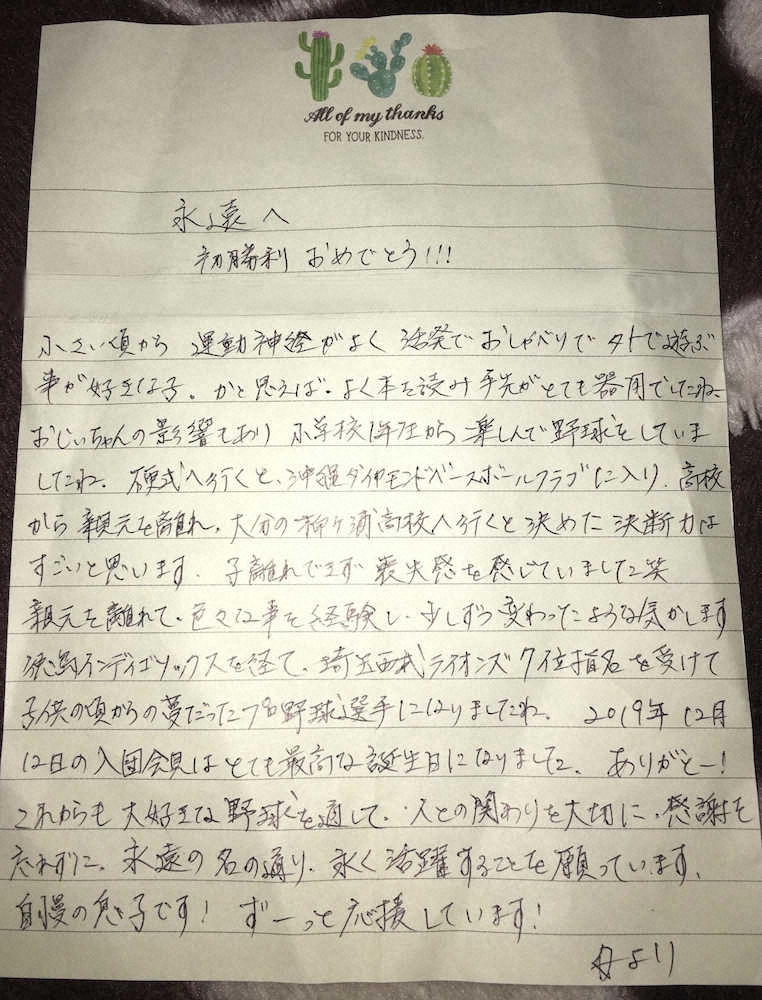 All of my thanks
FOR YOUR KINDNESS.
永遠へ
初勝利 おめでとう!!!
小さい頃から 運動神経がよく 活発で おしゃべりで 外で遊ぶ
事が好きな子。かと思えば、よく本を読み 手先がとても器用でしたね、
おじいちゃんの影響もあり 小学校1年生から 楽しんで野球をしていま
したね。硬式へ行くと、沖縄ダイヤモンドベースボールクラブに入り、高校
から 親元を離れ、大分の柳ヶ浦高校へ行くと決めた決断力は
すごいと思います。子離れできず 喪失感を感じていました笑
親元を離れて、色々な事を経験し、少しずつ変わったような気がします
徳島インディゴソックスを経て、埼玉西武ライオンズ 7位指名を受けて
子供の頃からの夢だったプロ野球選手になりましたね。2019年12月
12日の入団会見は とても最高な誕生日になりました、ありがとー!
これからも 大好きな野球を通して、人との関わりを大切に、感謝を
忘れずに、永遠の名の通り、永く活躍することを願っています、
自慢の息子です! ずーっと応援しています!
母より